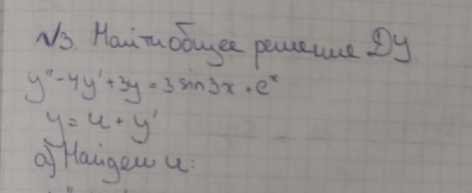 №3. Найти общее решение ДУ.
y''-4y'+3y=3sin3x+eˣ
y=u+y'
а) Найдем u: